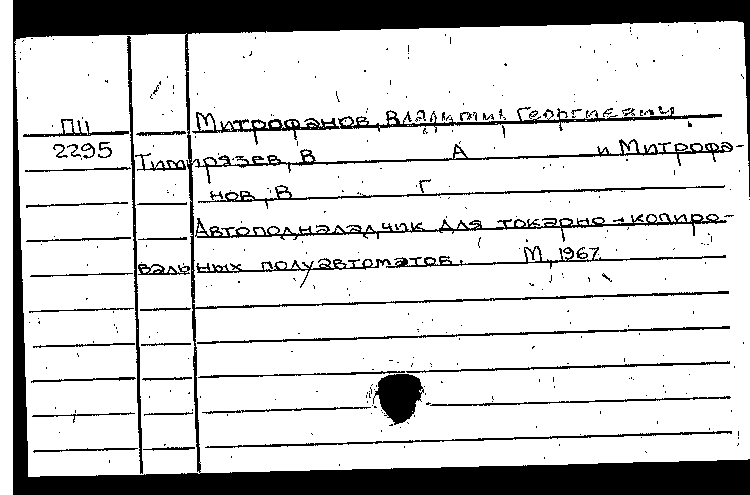 П11 Митрофанов, Владимир Георгиевич
2295 Тимирязев, В А и Митрофа-
нов, В Г
Автоподналадчик для токарно-копиро-
вальных полуавтоматов. М, 1967